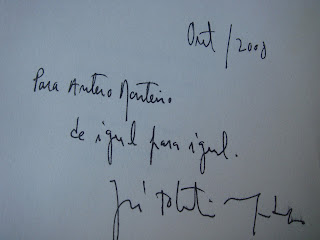 Out/2008
Para Antero Monteiro
de igual para igual.
José